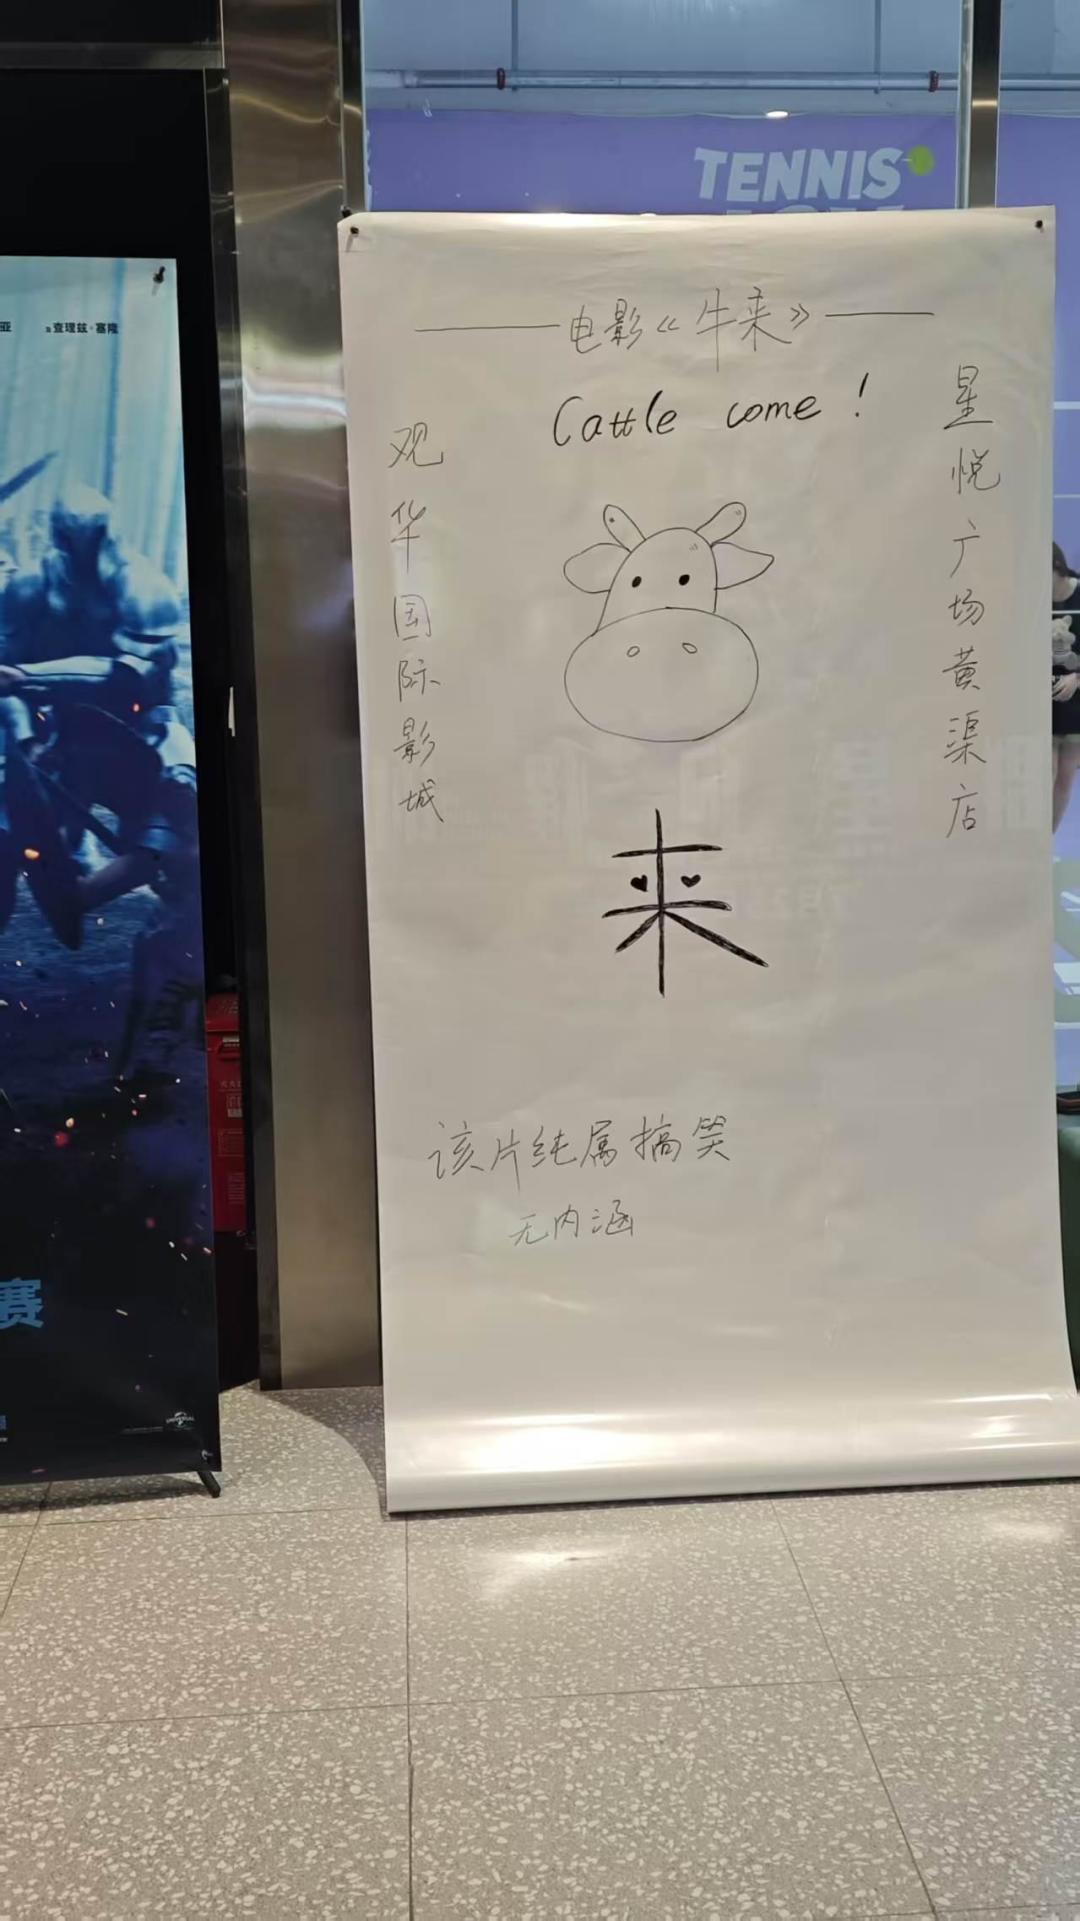 TENNIS
亚 查理兹·塞隆
电影《牛来》
Cattle come!
观华国际影城
星悦广场黄渠店
来
该片纯属搞笑
无内涵
赛
UNIVERSAL